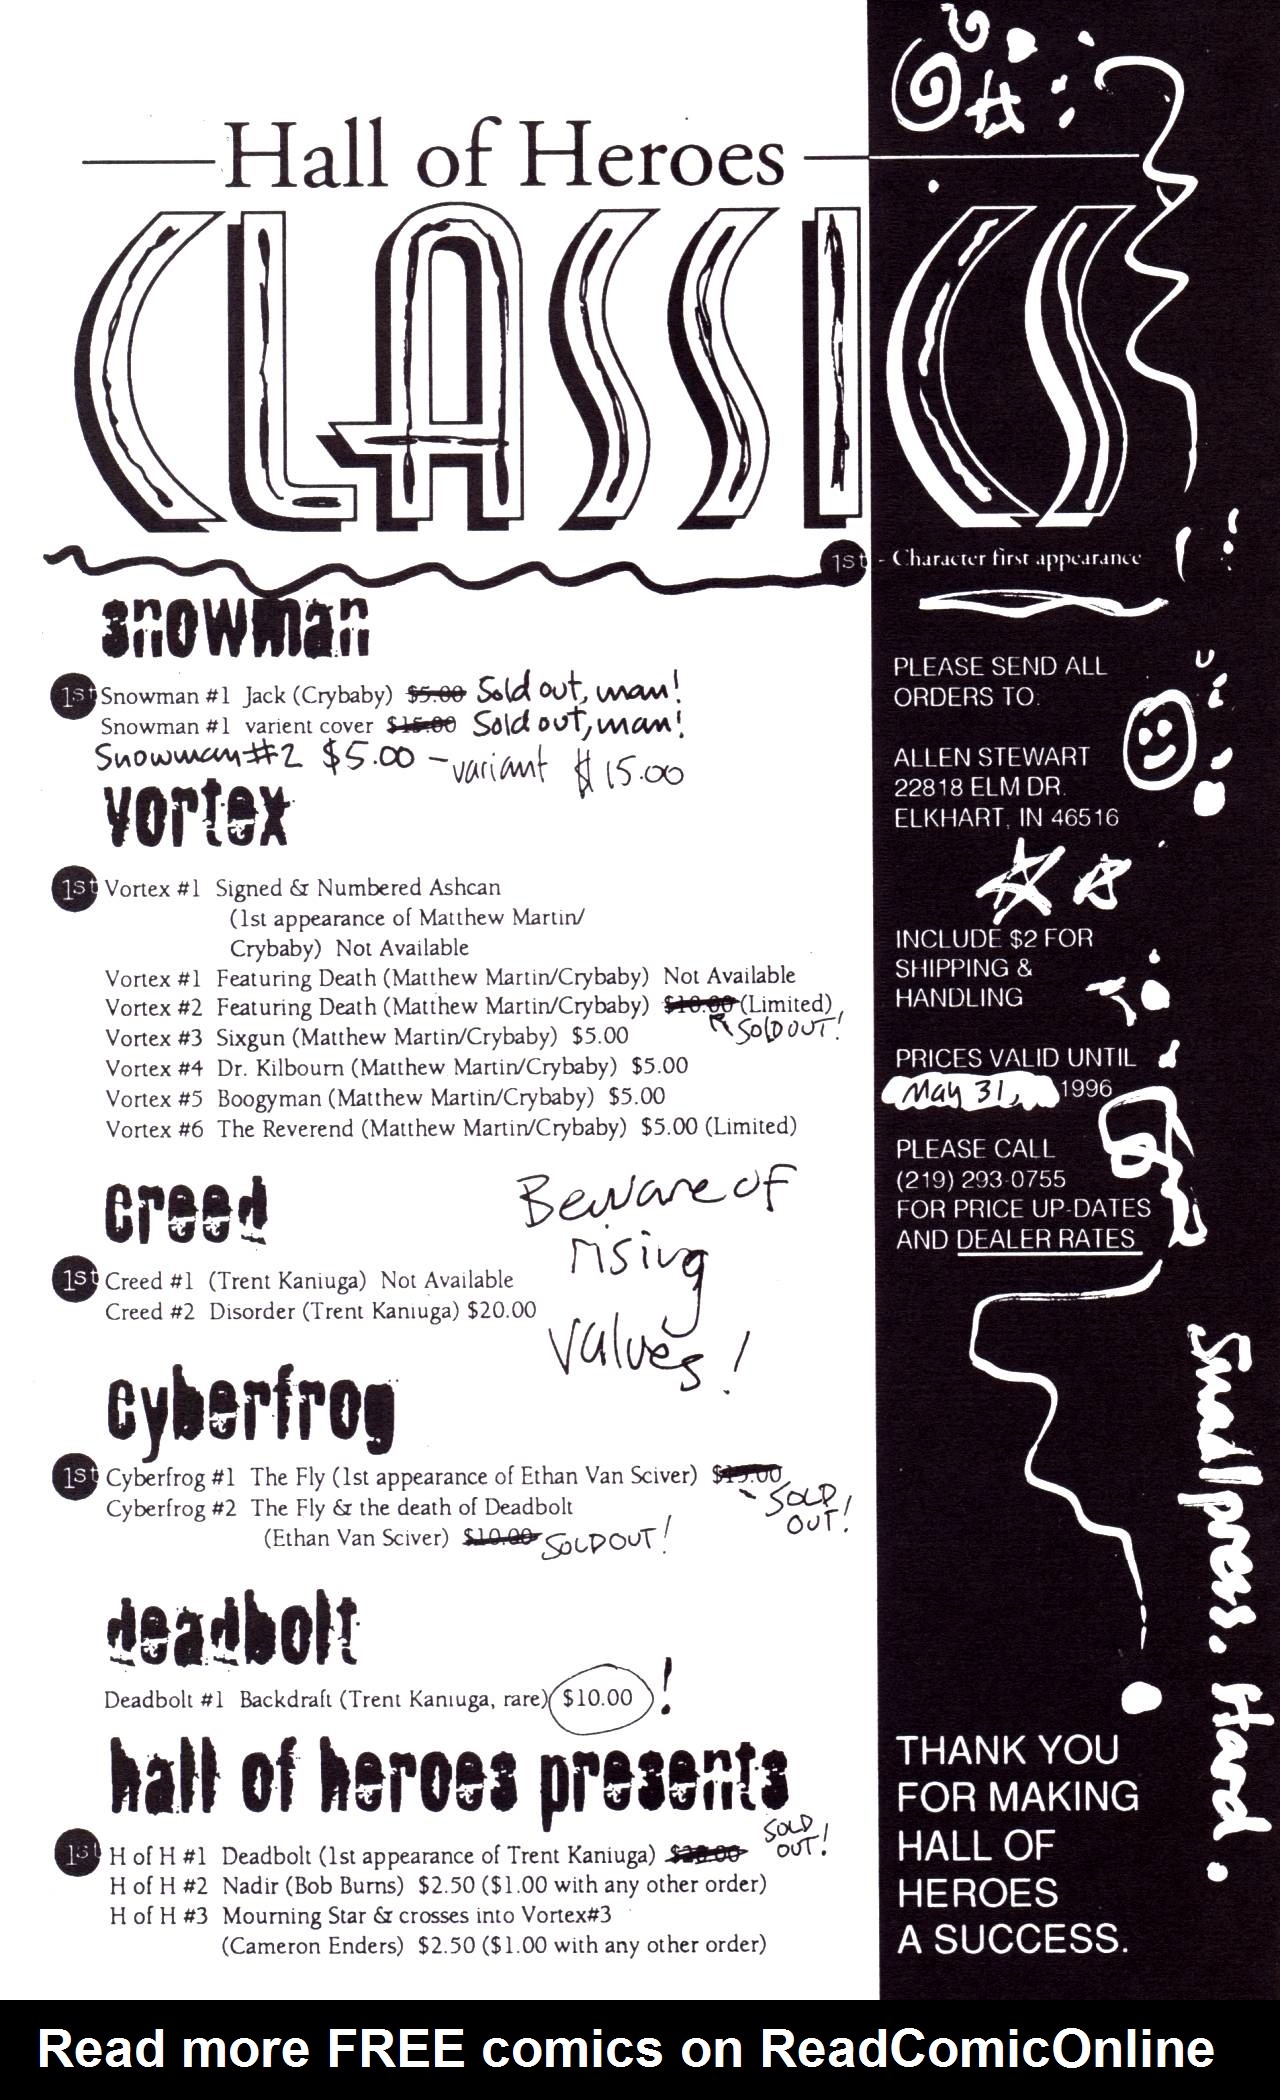 Hall of Heroes
CLASSICS
1st - Character first appearance
snowman
1st Snowman #1 Jack (Crybaby) $5.00 Sold out, man!
Snowman #1 varient cover $15.00 Sold out, man!
Snowman #2 $5.00 – variant $15.00
vortex
1st Vortex #1 Signed & Numbered Ashcan
(1st appearance of Matthew Martin/
Crybaby) Not Available
Vortex #1 Featuring Death (Matthew Martin/Crybaby) Not Available
Vortex #2 Featuring Death (Matthew Martin/Crybaby) $10.00 (Limited)
SOLD OUT!
Vortex #3 Sixgun (Matthew Martin/Crybaby) $5.00
Vortex #4 Dr. Kilbourn (Matthew Martin/Crybaby) $5.00
Vortex #5 Boogyman (Matthew Martin/Crybaby) $5.00
Vortex #6 The Reverend (Matthew Martin/Crybaby) $5.00 (Limited)
creed
1st Creed #1 (Trent Kaniuga) Not Available
Creed #2 Disorder (Trent Kaniuga) $20.00
Beware of
rising
values!
cyberfrog
1st Cyberfrog #1 The Fly (1st appearance of Ethan Van Sciver) $15.00
SOLD
OUT!
Cyberfrog #2 The Fly & the death of Deadbolt
(Ethan Van Sciver) $10.00 SOLD OUT!
deadbolt
Deadbolt #1 Backdraft (Trent Kaniuga, rare) $10.00 !
hall of heroes presents
SOLD
OUT!
1st H of H #1 Deadbolt (1st appearance of Trent Kaniuga) $20.00
H of H #2 Nadir (Bob Burns) $2.50 ($1.00 with any other order)
H of H #3 Mourning Star & crosses into Vortex#3
(Cameron Enders) $2.50 ($1.00 with any other order)
PLEASE SEND ALL
ORDERS TO:
ALLEN STEWART
22818 ELM DR.
ELKHART, IN 46516
INCLUDE $2 FOR
SHIPPING &
HANDLING
PRICES VALID UNTIL
May 31, 1996
PLEASE CALL
(219) 293-0755
FOR PRICE UP-DATES
AND DEALER RATES
Smallpress. Hard.
THANK YOU
FOR MAKING
HALL OF
HEROES
A SUCCESS.
Read more FREE comics on ReadComicOnline